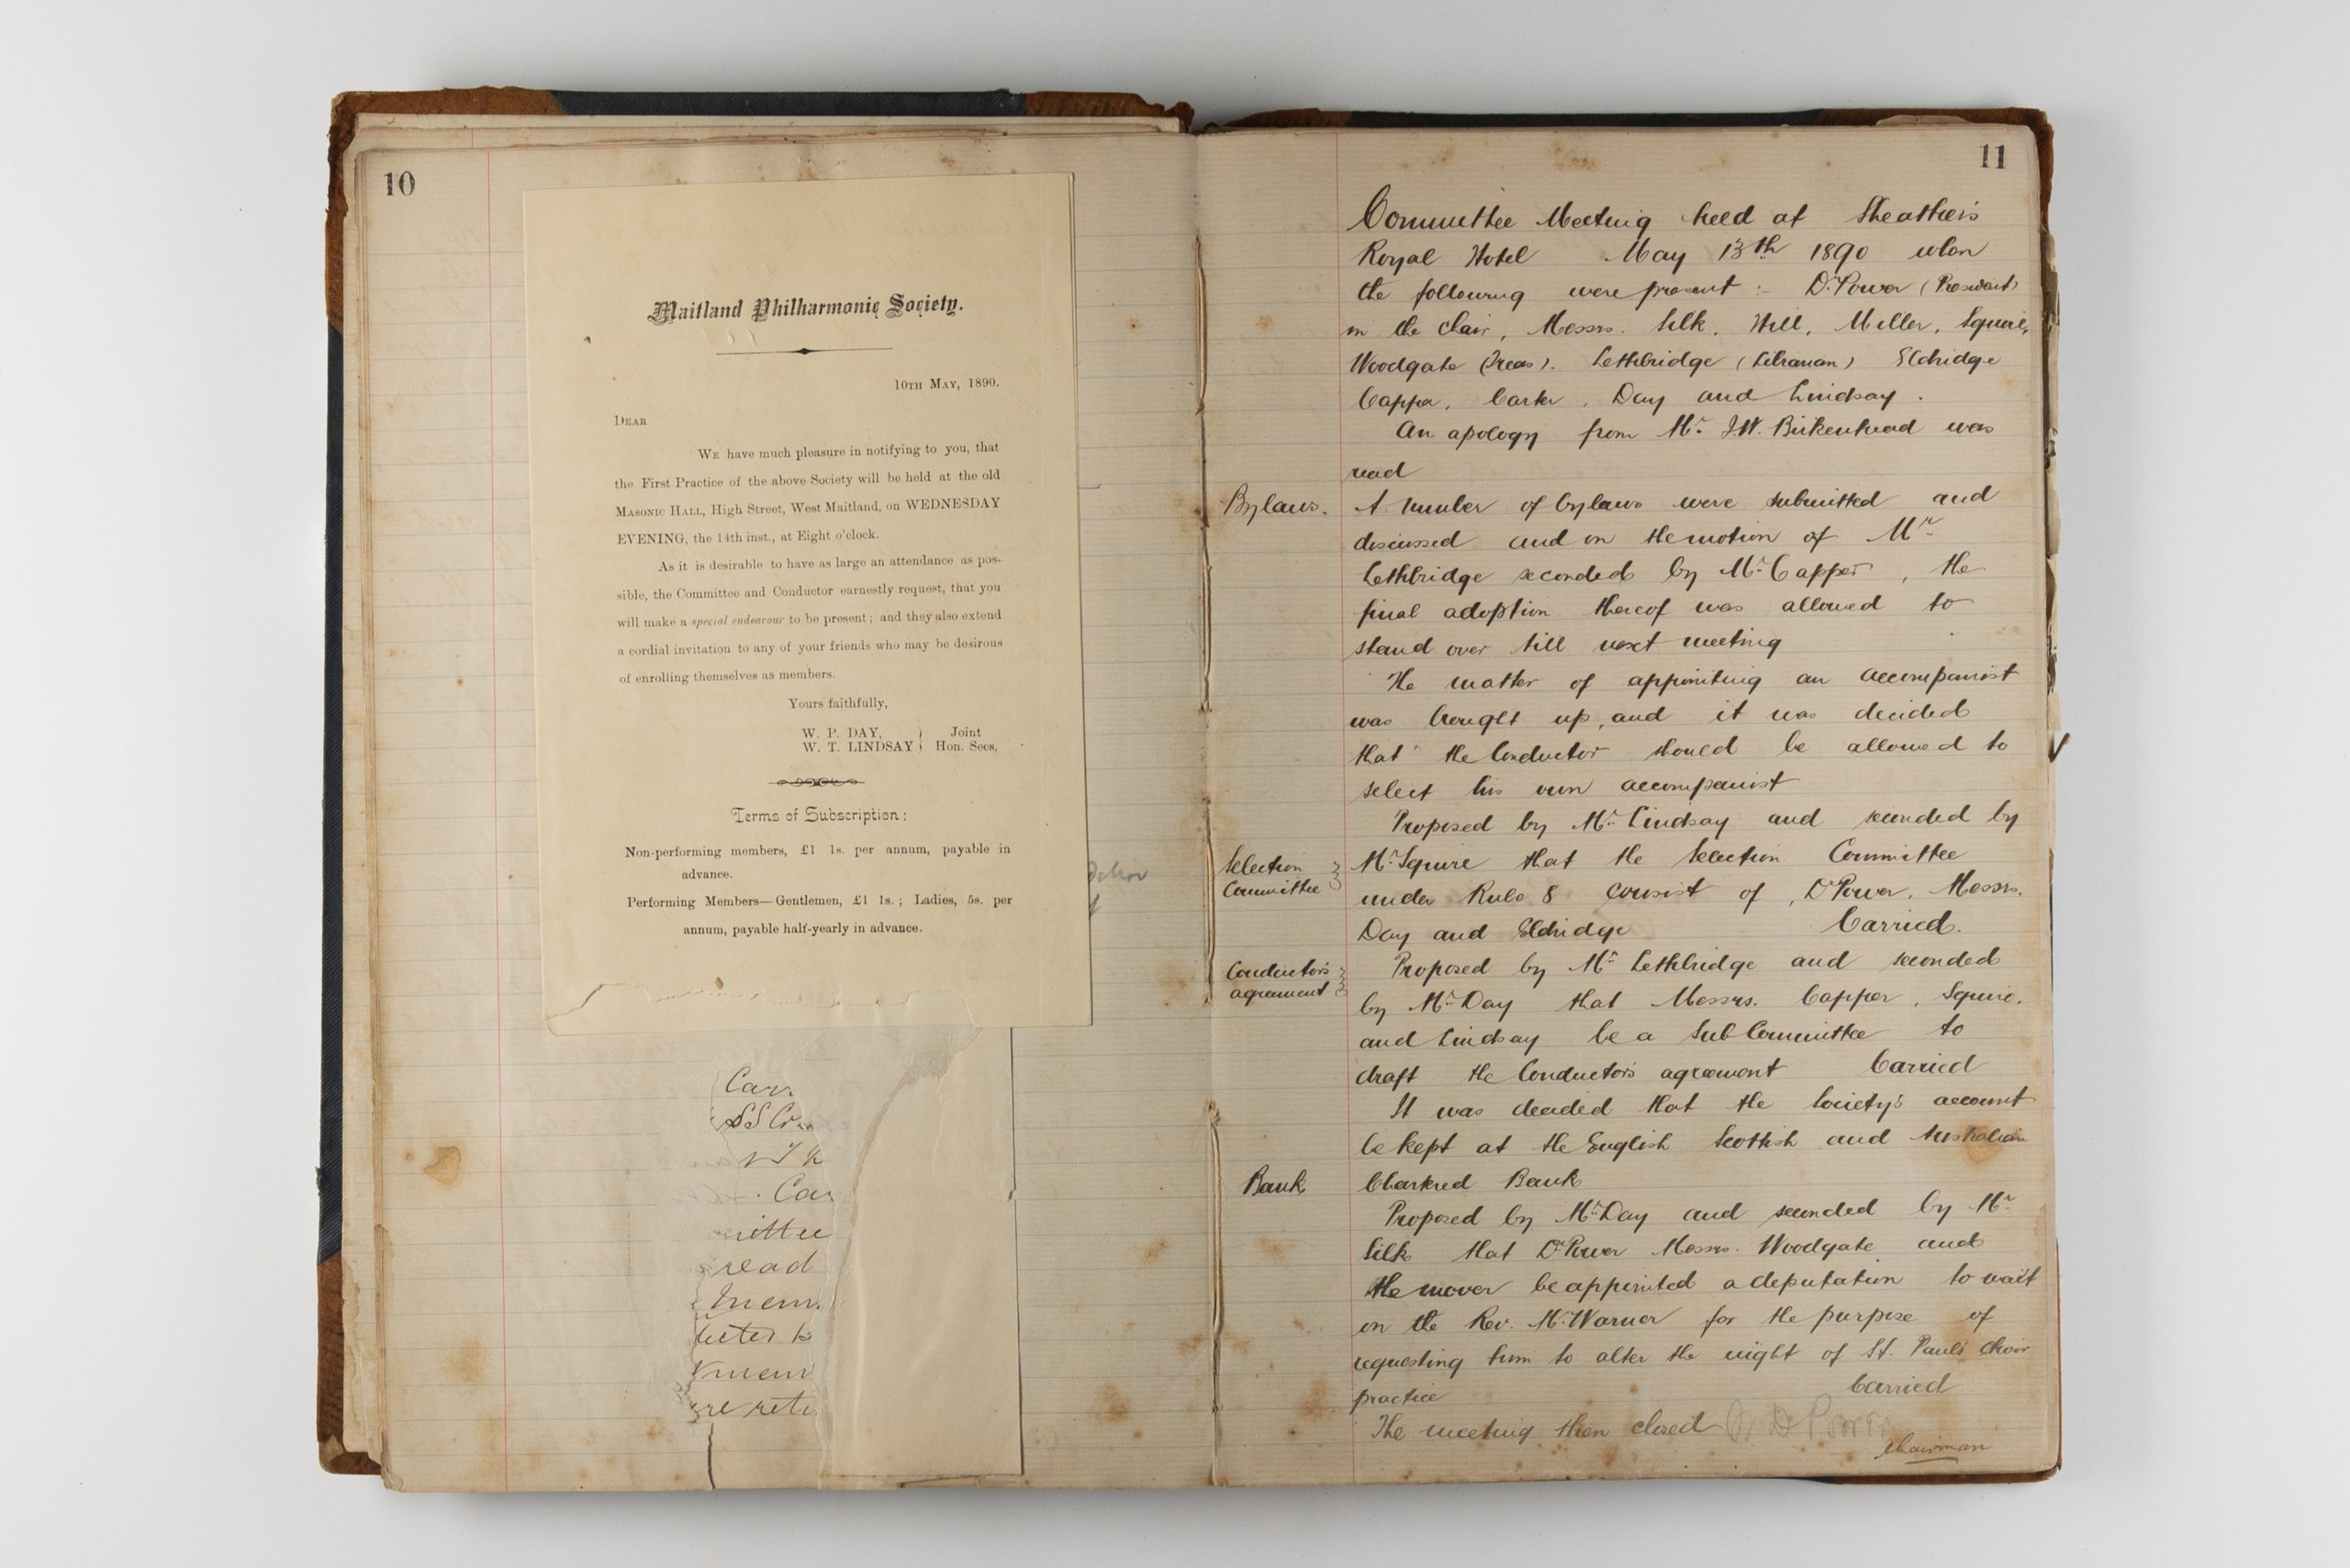 10
Maitland Philharmonic Society.
10TH MAY, 1890.
DEAR
WE have much pleasure in notifying to you, that
the First Practice of the above Society will be held at the old
MASONIC HALL, High Street, West Maitland, on WEDNESDAY
EVENING, the 14th inst., at Eight o'clock.
As it is desirable to have as large an attendance as pos-
sible, the Committee and Conductor earnestly request, that you
will make a special endeavour to be present; and they also extend
a cordial invitation to any of your friends who may be desirous
of enrolling themselves as members.
Yours faithfully,
W. P. DAY, } Joint
W. T. LINDSAY } Hon. Secs,
Terms of Subscription:
Non-performing members, £1 1s. per annum, payable in
advance.
Performing Members—Gentlemen, £1 1s.; Ladies, 5s. per
annum, payable half-yearly in advance.
Car
Ca
ittee
read
mem
11
Committee Meeting held at Sheather's
Royal Hotel May 13th 1890 when
the following were present :- Dr Power (President)
in the chair, Messrs. Silk, Hill, Miller, Squire,
Woodgate (Treas). Lethbridge (Librarian) Eldridge
Capper, Carter, Day and Lindsay.
An apology from Mr. J.W. Birkenhead was
read
Bylaws. A number of bylaws were submitted and
discussed and on the motion of Mr
Lethbridge seconded by Mr Capper, the
final adoption thereof was allowed to
stand over till next meeting
The matter of appointing an accompanist
was brought up, and it was decided
that the Conductor should be allowed to
select his own accompanist
Proposed by Mr Lindsay and seconded by
Selection Committee Mr Squire that the Selection Committee
under Rule 8 consist of, Dr Power, Messrs.
Day and Eldridge Carried.
Conductor's agreement Proposed by Mr Lethbridge and seconded
by Mr Day that Messrs. Capper, Squire,
and Lindsay be a Sub Committee to
draft the Conductor's agreement Carried
It was decided that the Society's account
be kept at the English Scottish and Australian
Bank Chartered Bank
Proposed by Mr Day and seconded by Mr
Silk that Dr Power Messrs. Woodgate and
the mover be appointed a deputation to wait
on the Rev. Mr Warner for the purpose of
requesting him to alter the night of St. Paul's Choir
practice Carried
The meeting then closed
Chairman